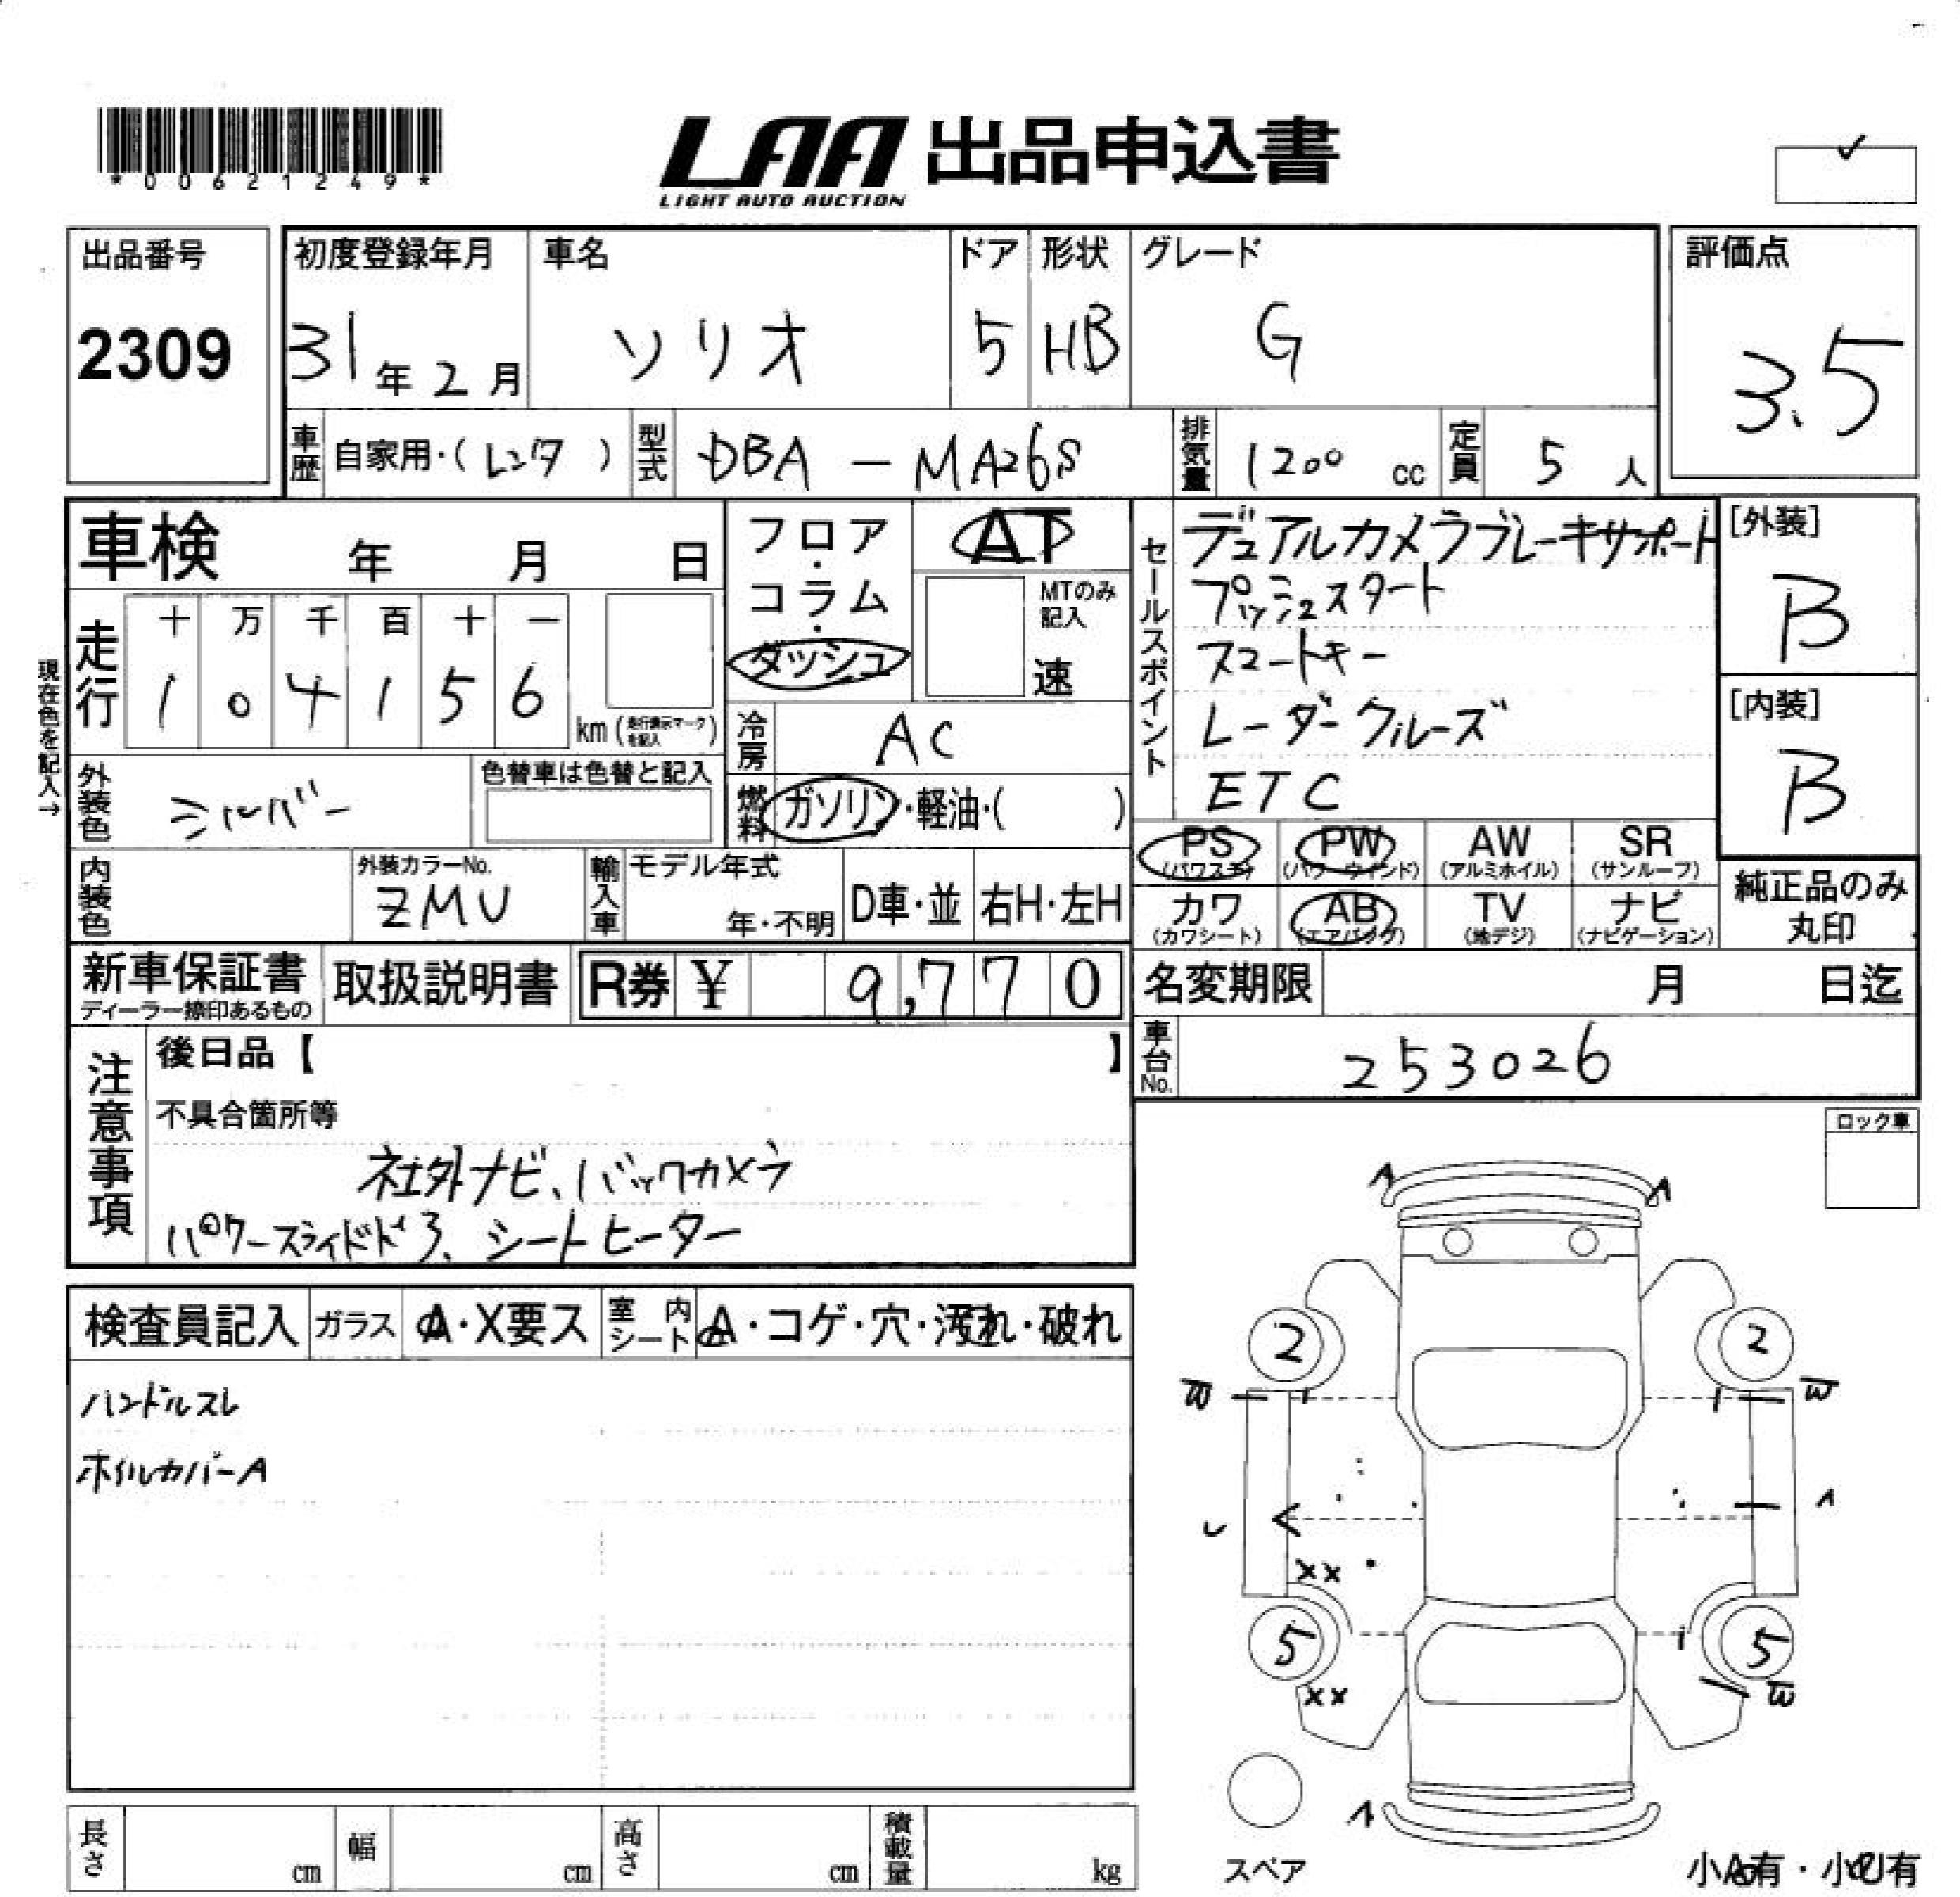 *00621249*
LAA 出品申込書
LIGHT AUTO AUCTION
出品番号
2309
初度登録年月
31年2月
車名
ソリオ
ドア
5
形状
HB
グレード
G
評価点
3.5
車歴 自家用・(レンタ)
型式 DBA-MA26S
排気量 1200 cc
定員 5 人
車検 年 月 日
フロア・コラム・ダッシュ
AT
MTのみ記入
速
現在色を記入→
走行
十 万 千 百 十 一
1 0 4 1 5 6
km (走行表示マークを記入)
冷房 AC
燃料 ガソリン・軽油・( )
外装色 シルバー
色替車は色替と記入
内装色
外装カラーNo.
ZMU
輸入車
モデル年式
年・不明
D車・並
右H・左H
セールスポイント
デュアルカメラブレーキサポート
プッシュスタート
スマートキー
レーダークルーズ
ETC
[外装]
B
[内装]
B
PS (パワステ)
PW (パワーウインド)
AW (アルミホイル)
SR (サンルーフ)
カワ (カワシート)
AB (エアバッグ)
TV (地デジ)
ナビ (ナビゲーション)
純正品のみ丸印
新車保証書
ディーラー捺印あるもの
取扱説明書
R券 ¥ 9,770
名変期限 月 日迄
車台No. 253026
注意事項
後日品【 】
不具合箇所等
社外ナビ、バックカメラ
パワースライドドア、シートヒーター
ロック車
検査員記入
ガラス A・X要ス
室内シート A・コゲ・穴・汚れ・破れ
ハンドルスレ
ホイルカバーA
A A
2 2
W W
A
U
XX
5 5
XX W
A
スペア
小A有・小U有
長さ cm
幅 cm
高さ cm
積載量 kg